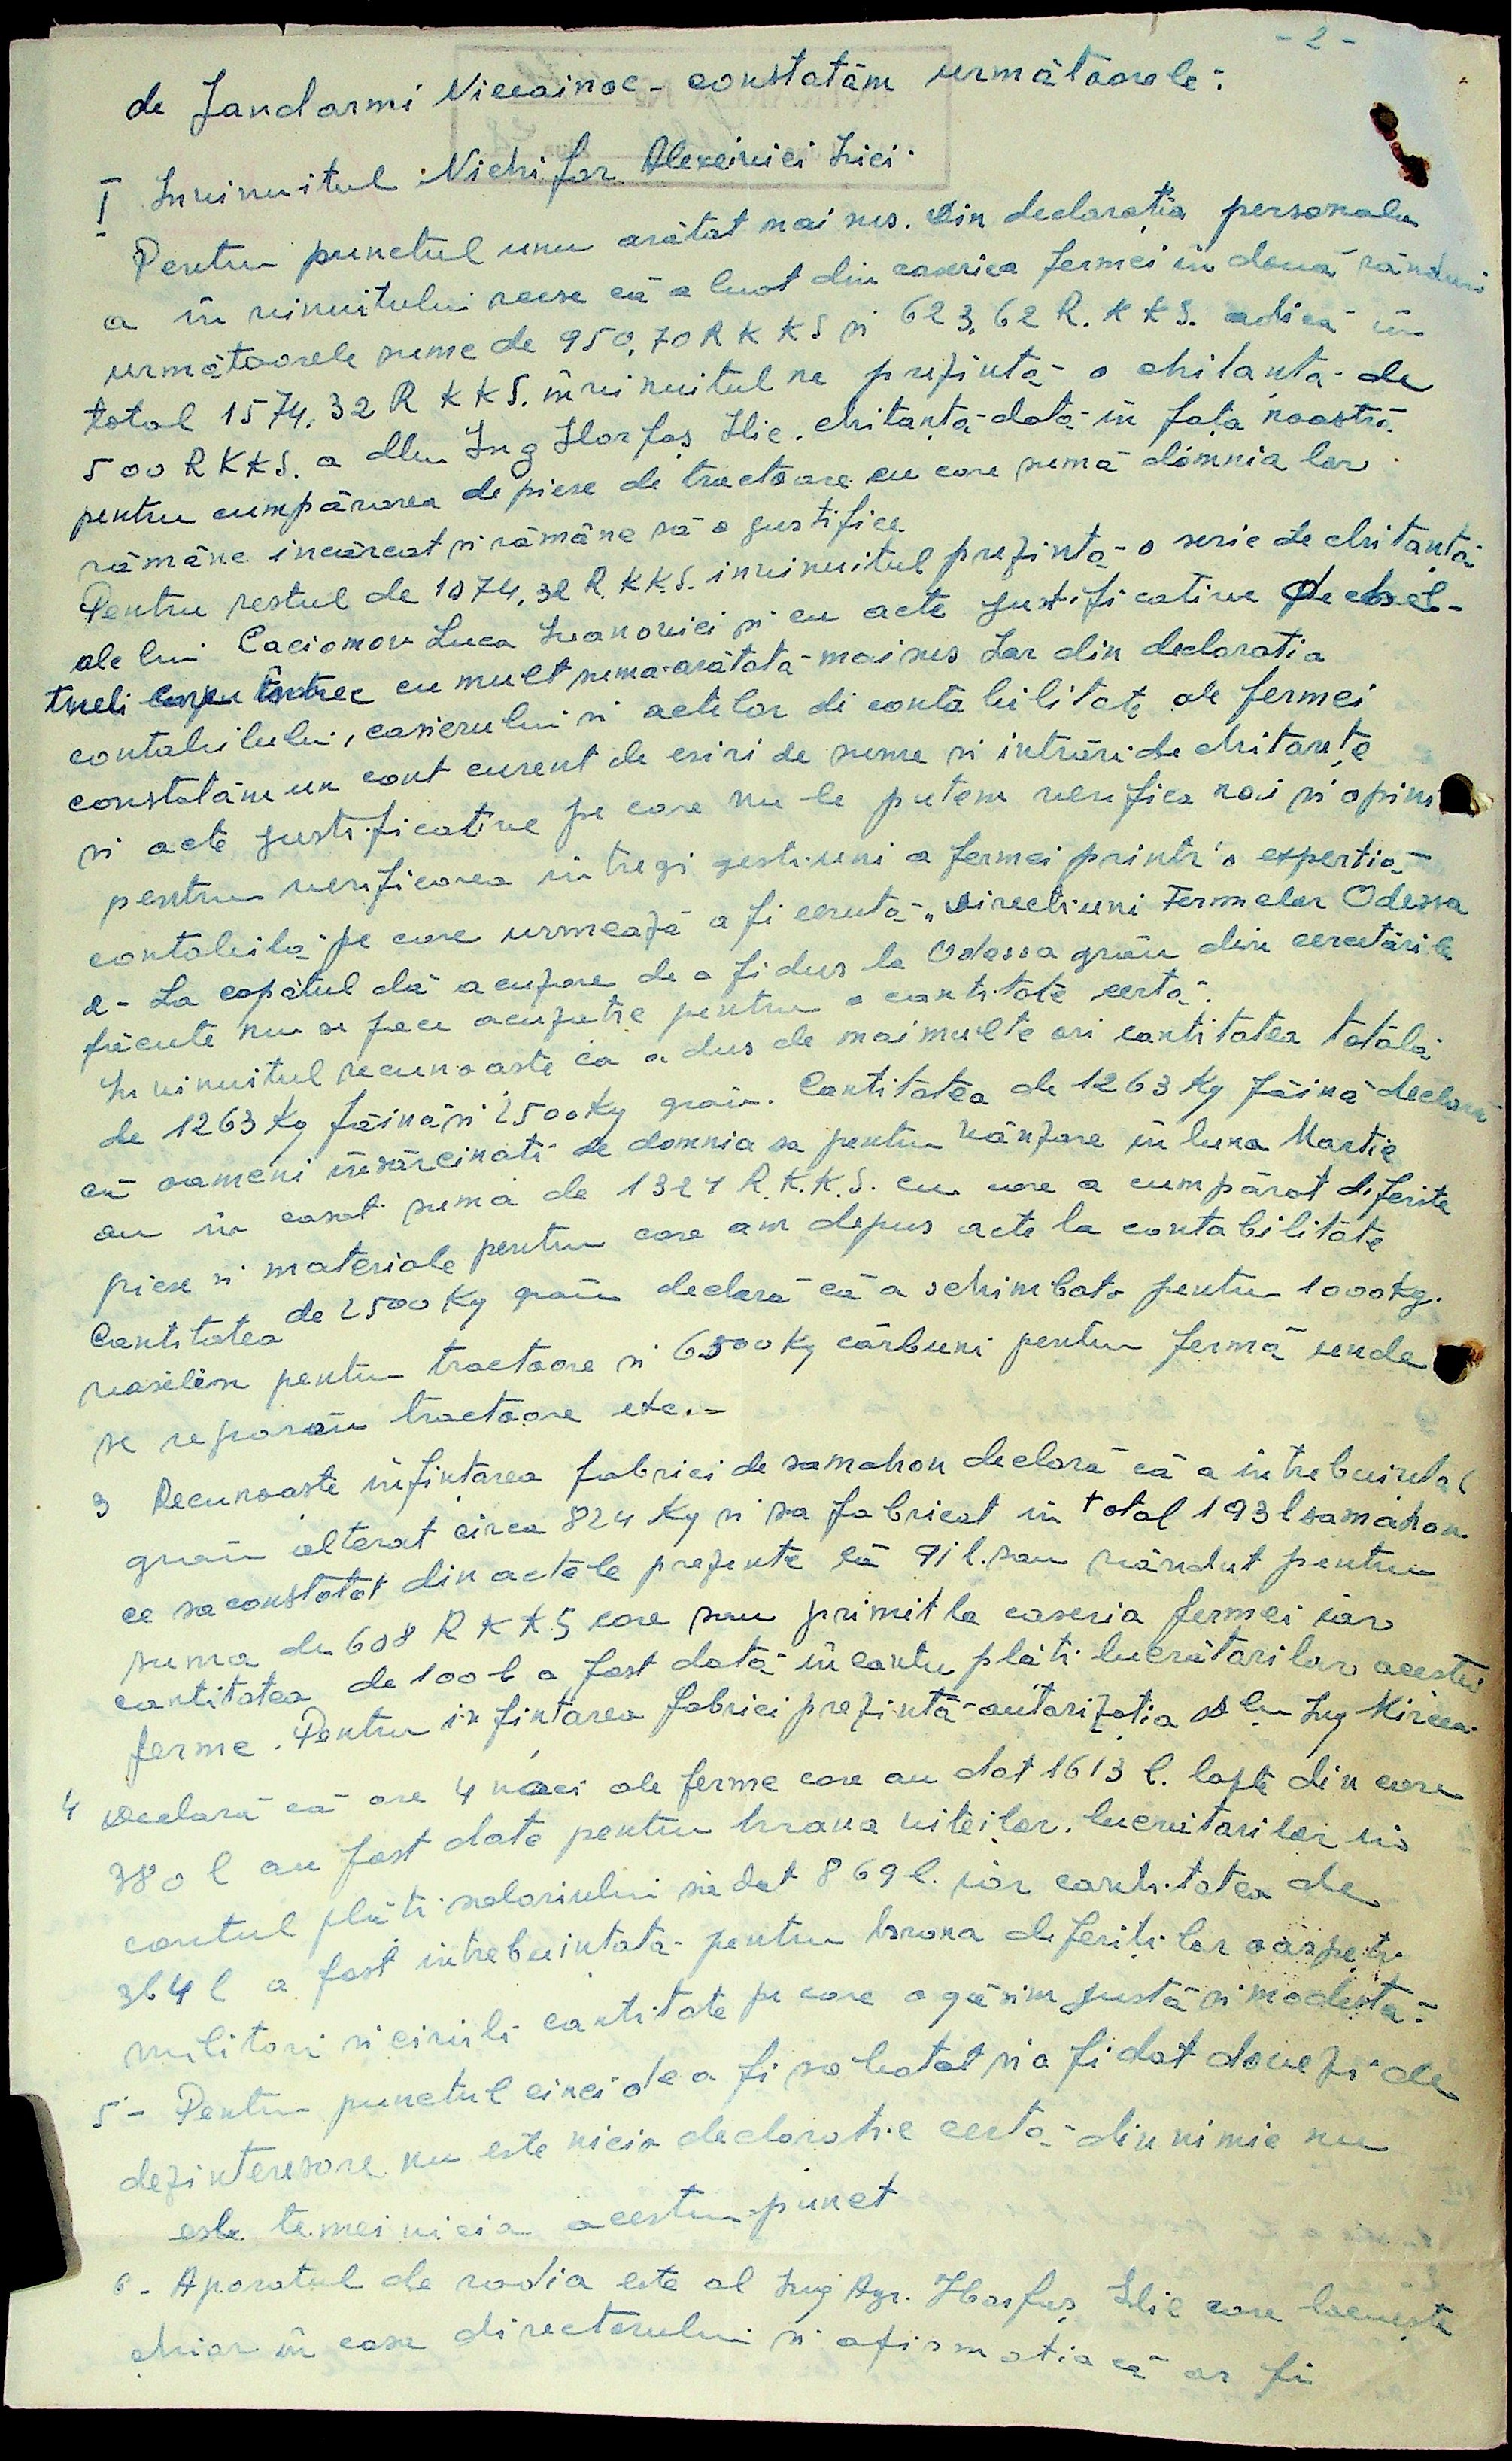 - 2 -
de Jandarmi Nicoainoe - constatăm următoarele:
I Invinuitul Nichifor Alexeivici
Pentru punctul unu arătat mai sus. Din declarația personala
a invinuitului reese că a luat din caseria fermei în două rânduri
următoarele sume de 950,70 R K K S si 623,62 R. K K S. adică în
total 1574,32 R K K S. invinuitul ne prezintă o chitanța de
500 R K K S. a dlui Ing Horfaș Ilie. chitanță dată în fața noastră
pentru cumpărarea de piese de tractoare cu care sumă domnia lor
rămâne incărcat si rămâne să o justifice
Pentru restul de 1074,32 R.K.K.S. invinuitul prezintă o serie de chitanță
ale lui Caciomov Luca Ivanovici si cu acte justificative de chel-
tueli întrec cu mult suma arătată mai sus Iar din declaratia
contabilului, casierului si actelor di contabilitate ale fermei
constatăm un cont curent de esiri de sume si intrări de chitanțe
si acte justificative pe care nu le putem verifica noi si opinăm
pentru verificarea intregi gestiuni a fermei printr'o expertiză
contabilă pe care urmează a fi cerută „Directiuni Fermelor Odessa
2 - La capătul dă acuzare de a fi dus la Odessa grâu din cercetările
făcute nu se face acuzatie pentru o cantitate certă.
Invinuitul recunoaste că a dus de mai multe ori cantitatea totală
de 1263 Kg făină si 2500 Kg grâu. Cantitatea de 1263 Kg făină declară
că oameni insărcinati de domnia sa pentru vânzare în luna Martie
au in casat suma de 1324 R.K.K.S. cu care a cumpărat diferite
piese si materiale pentru care am depus acte la contabilitate
Cantitatea de 2500 Kg grâu declară că a schimbato pentru 1000 kg.
vaselina pentru tractoare si 6500 Kg cărbuni pentru fermă unde
se reparau tractoare etc.-
3 Recunoaste infintarea fabrici de samahon declară că a intrebuintat
grâu alterat circa 824 Kg si sa fabricat in total 193 l samahon
ce sa constatat din actele prezente că 91 l. sau vândut pentru
suma de 608 R K K S care sau primit la caseria fermei iar
cantitatea de 100 l a fost dată in contu plăti lucrătorilor acestei
ferme. Pentru infintarea fabrici prezintă autorizatia dlui Ing Mircea
4 Declară că are 4 vaci ale ferme care au dat 1613 l. lapte din care
380 l au fost date pentru hrana viteilor. lucrătorilor in
contul plăti salariului sa dat 869 l. iar cantitatea de
364 l a fost intrebuintată pentru hrana diferitilor oaspeti
militari si civili cantitate pe care o găsim justă si modestă.
5 - Pentru punctul cinci de a fi sabotat si a fi dat dovezi de
dezinteresare nu este nicio declaratie certă din nimic nu
este temeinicia acestui punct
6 - Aparatul de radio este al Ing Agr. Horfaș Ilie care locuește
chiar in casa directorului si afirmatia că ar fi